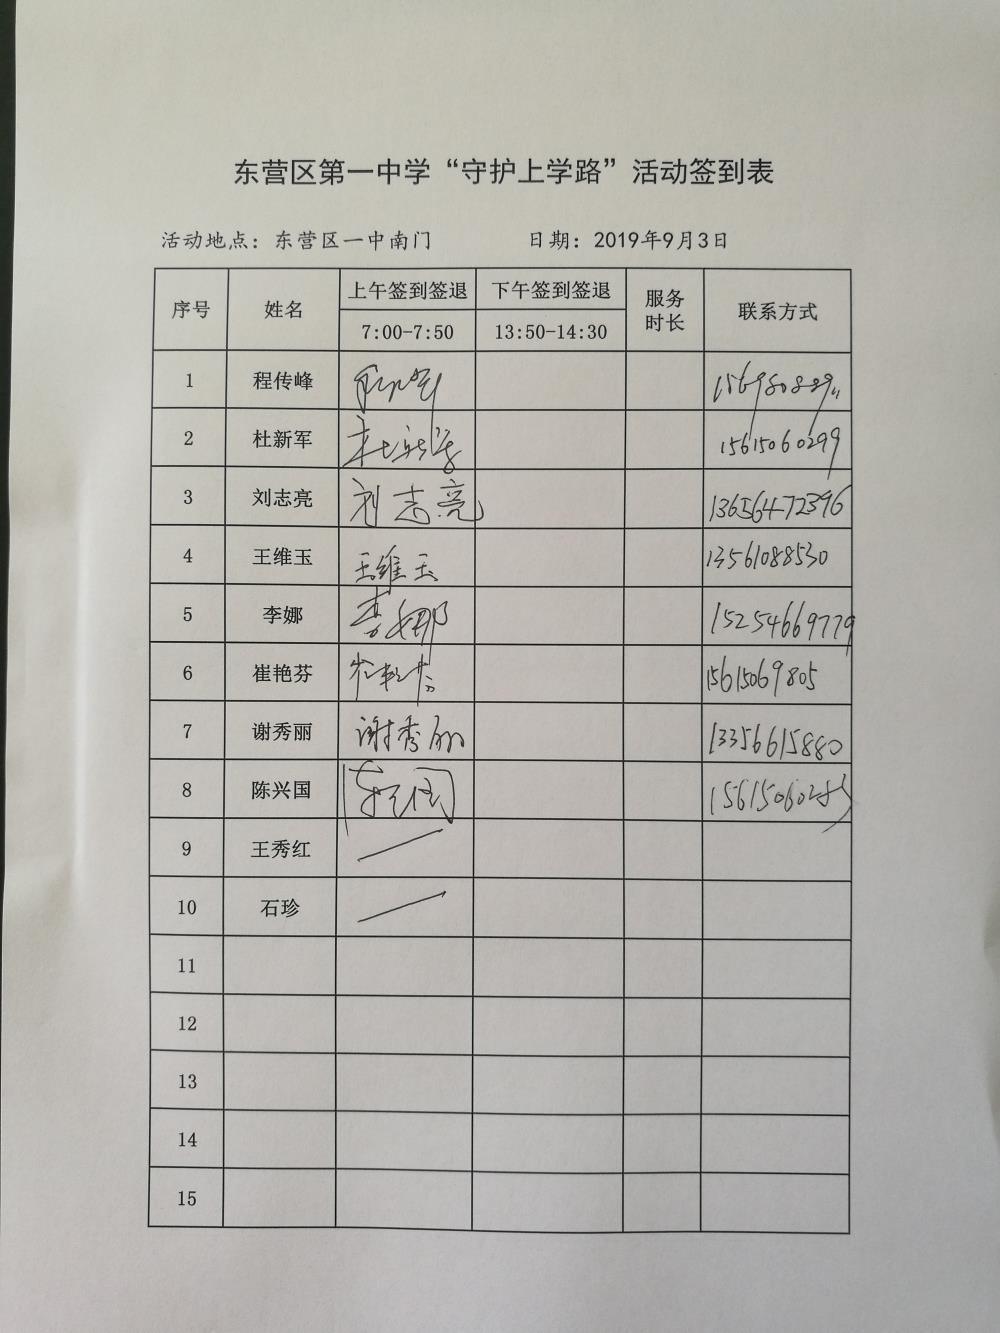 东营区第一中学“守护上学路”活动签到表
活动地点：东营区一中南门 日期：2019年9月3日
序号 姓名 上午签到签退 下午签到签退 服务时长 联系方式
7:00-7:50 13:50-14:30
1 程传峰
2 杜新军 杜新军 15615060299
3 刘志亮 刘志亮 13656472396
4 王维玉 王维玉 13561088530
5 李娜 李娜 15254669779
6 崔艳芬 崔艳芬 15615069805
7 谢秀丽 谢秀丽 13356615880
8 陈兴国 陈兴国
9 王秀红
10 石珍
11
12
13
14
15